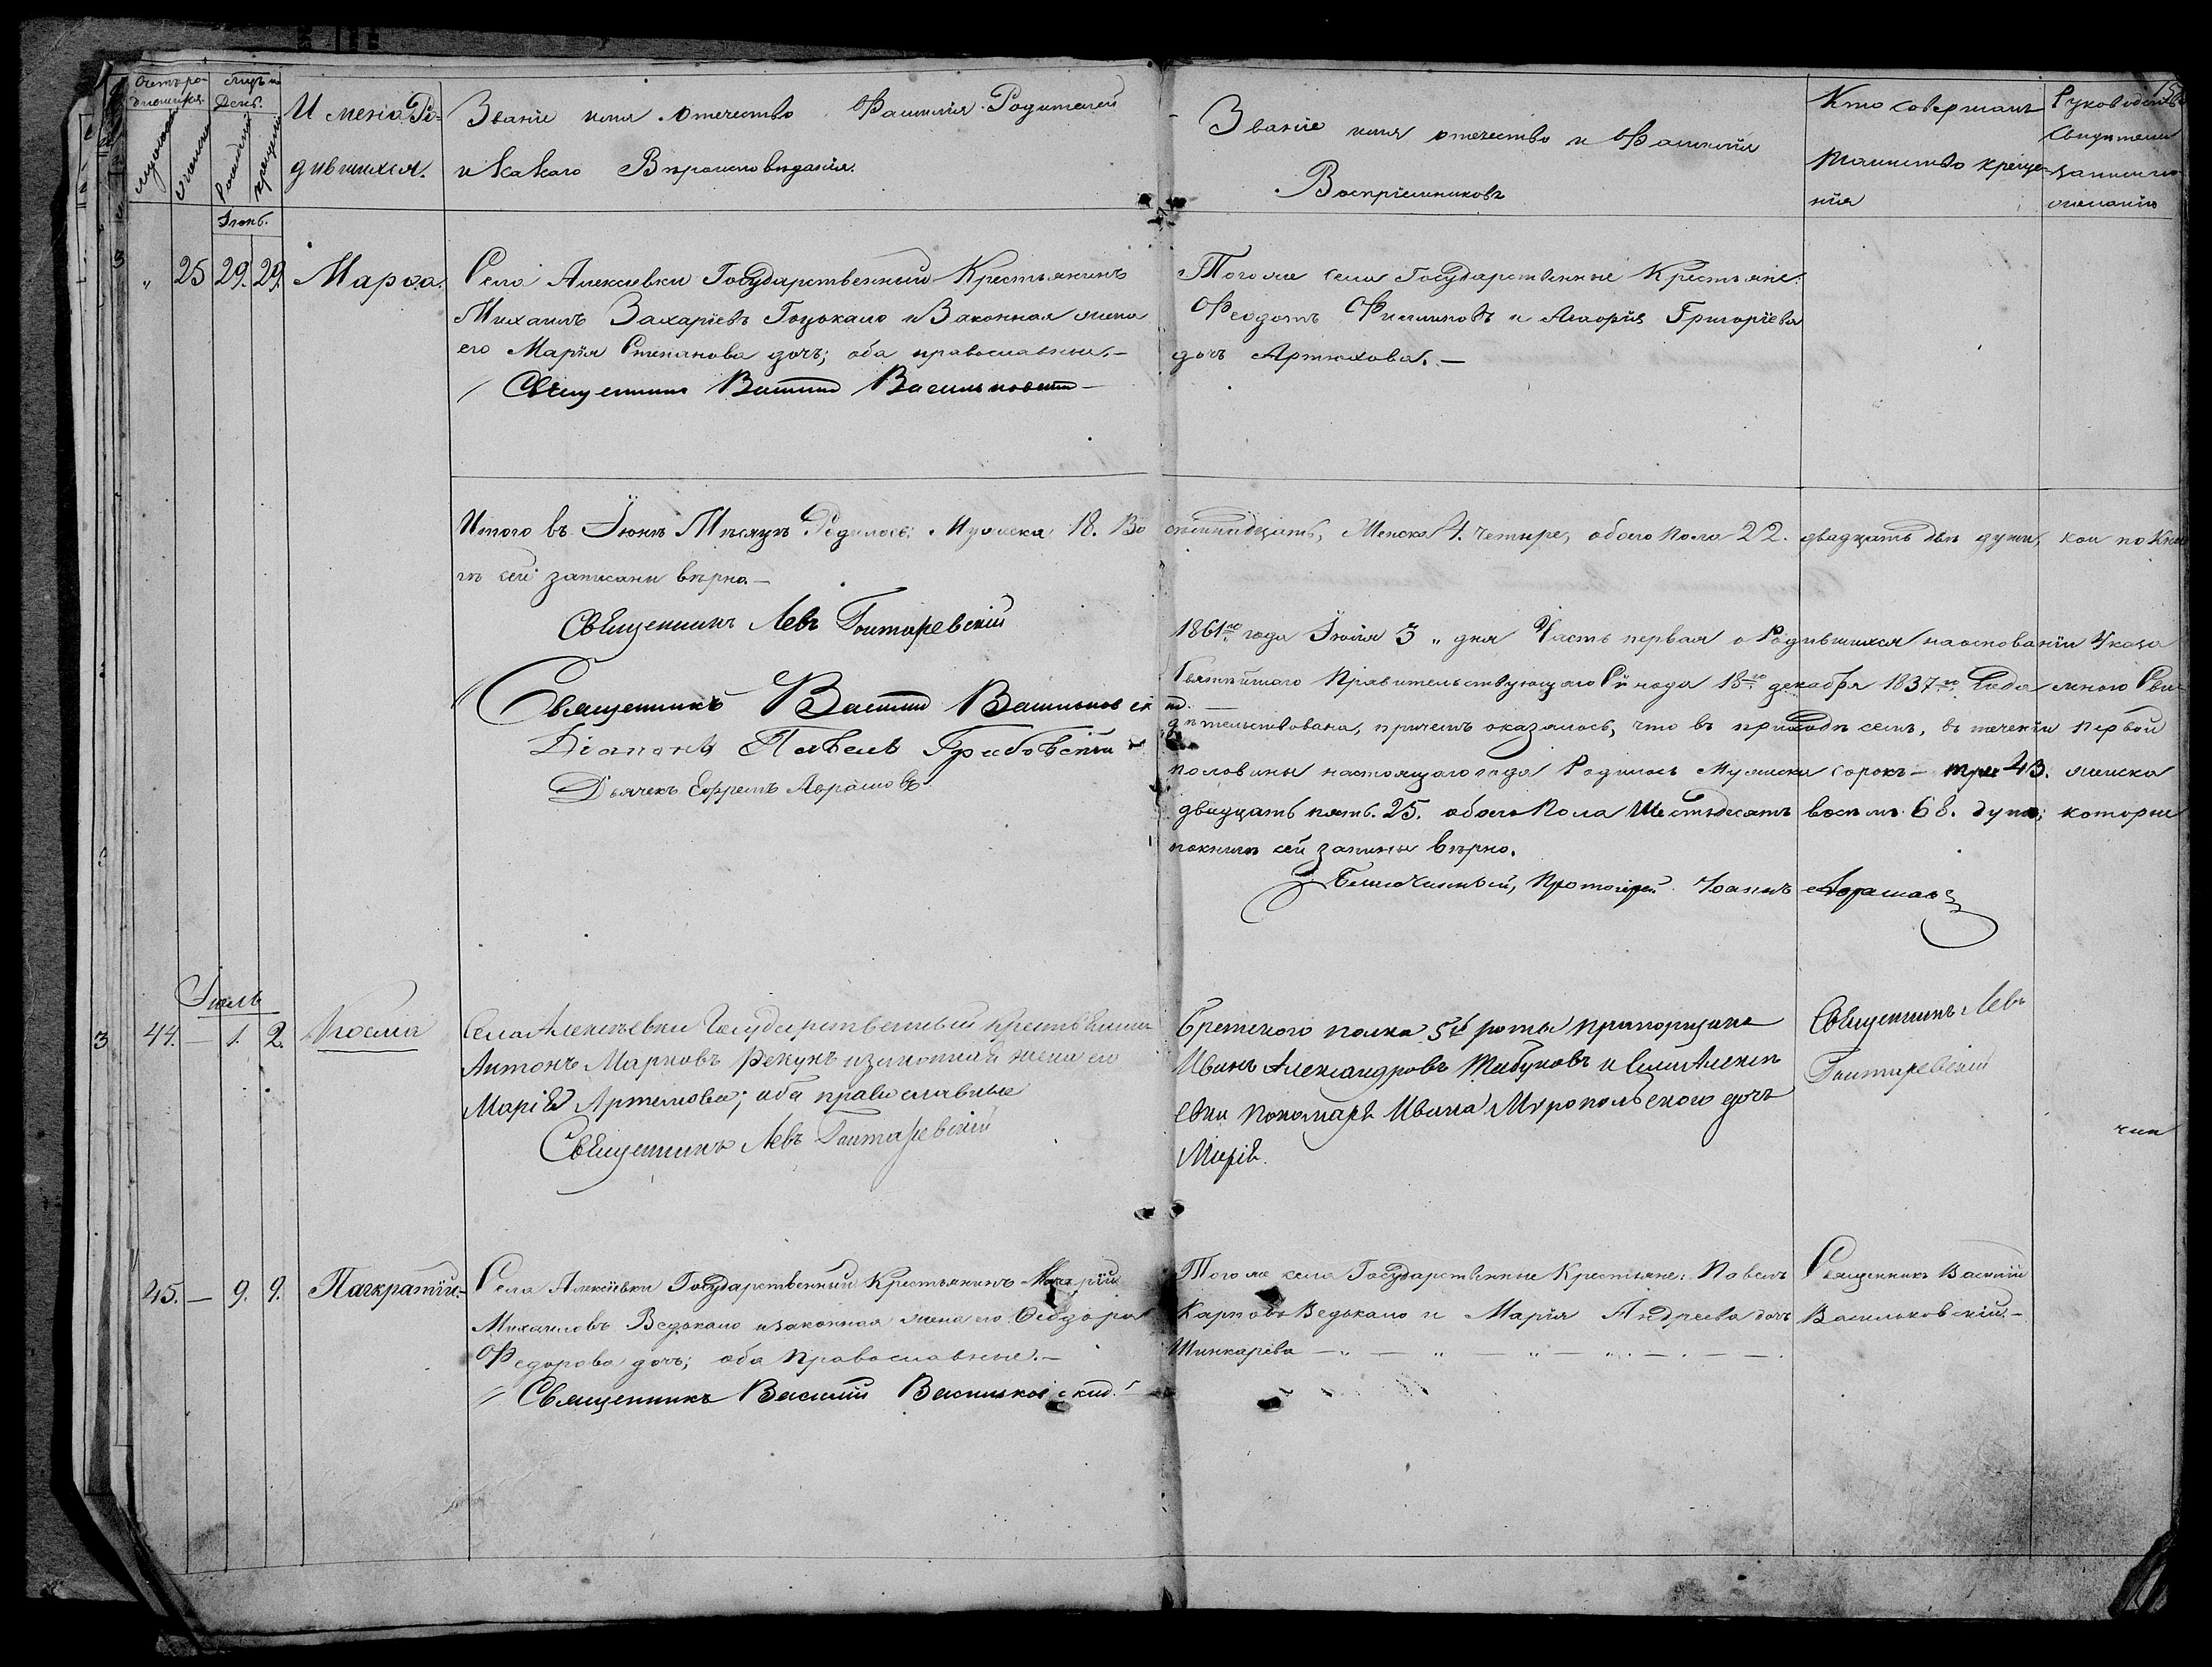 Счетъ ро-
дившихся
Мѣсяцъ и
День.
И мена Ро-
дившихся.
Званіе имя отечество Фамилія Родителей
и Какого Вѣроисповѣданія.
Званіе имя отечество и Фамилія
Воспріемниковъ
Кто совершалъ
таинство креще-
нія
мужеска
женска
рожденія
крещенія
Іюнь.
" 25 29. 29. Марѳа.
Села Алексѣевки Государственный Крестьянинъ
Михаилъ Захаріевъ и Законная жена
его Марія Степанова дочь; оба православные.—
Священникъ Василій Васильковскій
Того же села Государственные Крестьяне:
Ѳеодотъ Филиповъ и Григоріева
дочь Артюхова.—
Итого въ Іюнѣ Мѣсяцѣ Родилось: Мужеска 18. Во
семнадцать, Женска 4. четыре, обоего пола 22. двадцать двѣ души, кои по Кни
гѣ сей записаны вѣрно.—
Священникъ Левъ Гонтаревскій
Священникъ Василій Васильковскій
Діаконъ Павелъ Грабовскій
Дьячекъ Ефремъ Авраамовъ
1861го года Іюля 3 " дня Часть первая о Родившихся на основаніи Указа
Святѣйшаго Правительствующаго Сѵнода декабря 1837го Года мною Сви-
дѣтельствована, причемъ оказалось, что въ приходѣ семъ, въ теченіи первой
половины настоящаго года Родилось Мужеска сорокъ— три 43. женска
двадцать пять. 25. обоего Пола Шестьдесятъ восемь 68. душъ; которые
по книгѣ сей записаны вѣрно.
Благочинный, Протоіерей Іоаннъ Авраамовъ
Іюль
44. — 1. 2. Косма
Села Алексѣевки Государственный крестьянинъ
Антонъ Марковъ Рекунъ и законная жена его
Марія Артемова; оба православные
Священникъ Левъ Гонтаревскій
полка 5й роты прапорщикъ
Иванъ Александровъ Табуновъ и села Алексѣ
евки пономаря Ивана Миропольского дочь
Марія.
Священникъ Левъ
Гонтаревскій
45. — 9. 9. Панкратій.
Села Алексѣевки Государственный Крестьянинъ
Михаиловъ Ведькало и законная жена его Ѳеодора
Федорова дочь; оба Православные.—
Священникъ Василій Васильковскій.
Того же села Государственные Крестьяне: Павелъ
Карповъ Ведькало и Марія Андреева дочь
Шинкарева
Священникъ Василій
Васильковскій.—